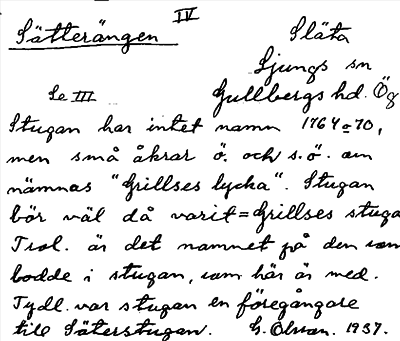 IV
Sätterängen Släta
Ljungs sn
Se III Gullbergs hd. Ög
Stugan har intet namn 1764 o 70,
men små åkrar ö. och s.ö. om
nämnas "Grillses lycka". Stugan
bör väl då varit = Grillses stuga
Trol. är det namnet på den som
bodde i stugan, som här är med.
Tydl. var stugan en föregångare
till Säterstugan. G. Olsson. 1937.